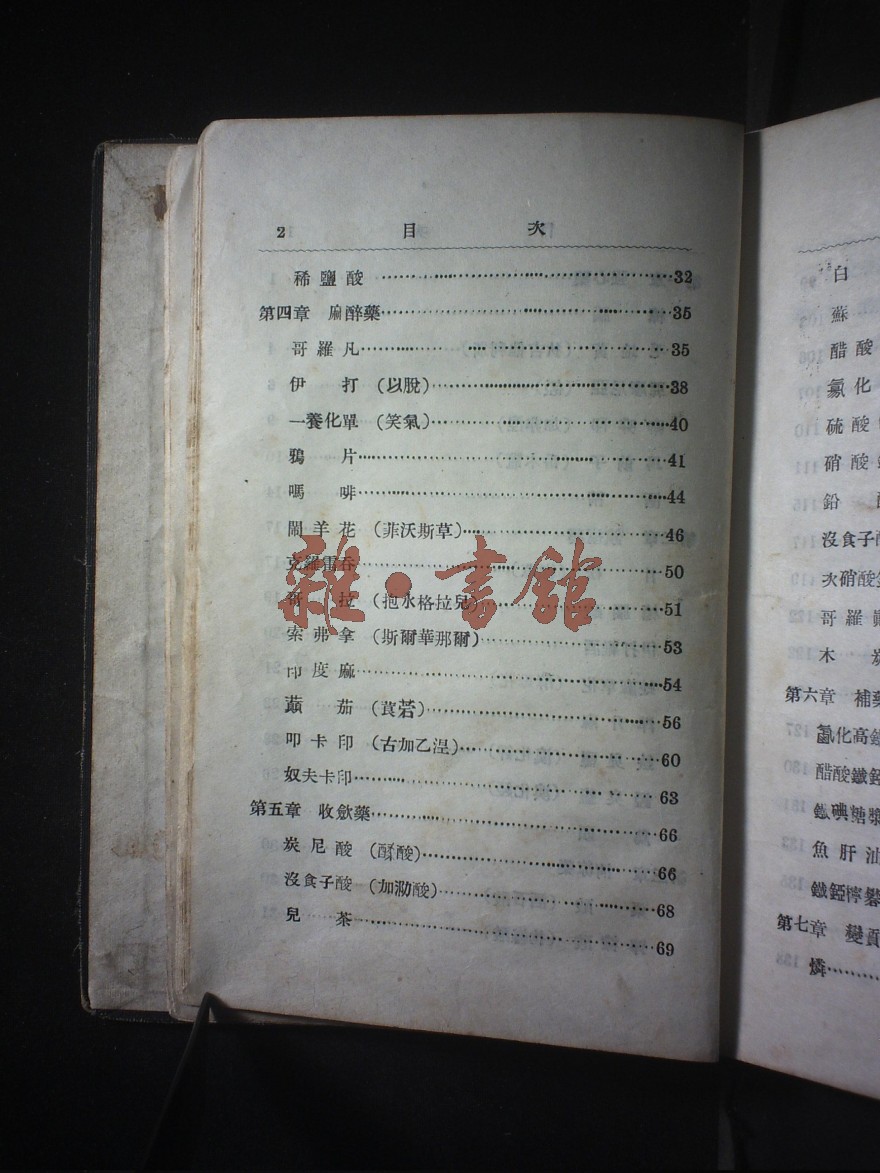 2 目 次
稀鹽酸 ……32
第四章 麻醉藥……35
哥羅凡……35
伊打 (以脫)……38
一養化單 (笑氣)……40
鴉片……41
嗎啡……44
鬧羊花 (菲沃斯草)……46
克羅雷吞……50
哥拉 (抱水格拉兒)……51
索弗拿 (斯爾華那爾)……53
印度麻……54
蘋茄 (莨菪)……56
叩卡印 (古加乙涅)……60
奴夫卡印……63
第五章 收斂藥……66
炭尼酸 (酥酸)……66
沒食子酸 (加泐酸)……68
兒茶……69
雜·書館
白
蘇
醋酸
氯化
硫酸
硝酸
鉛
沒食子
次硝酸
哥羅
木
第六章 補藥
氯化高鐵
醋酸鐵
碘糖漿
魚肝油
第七章 變
燐……